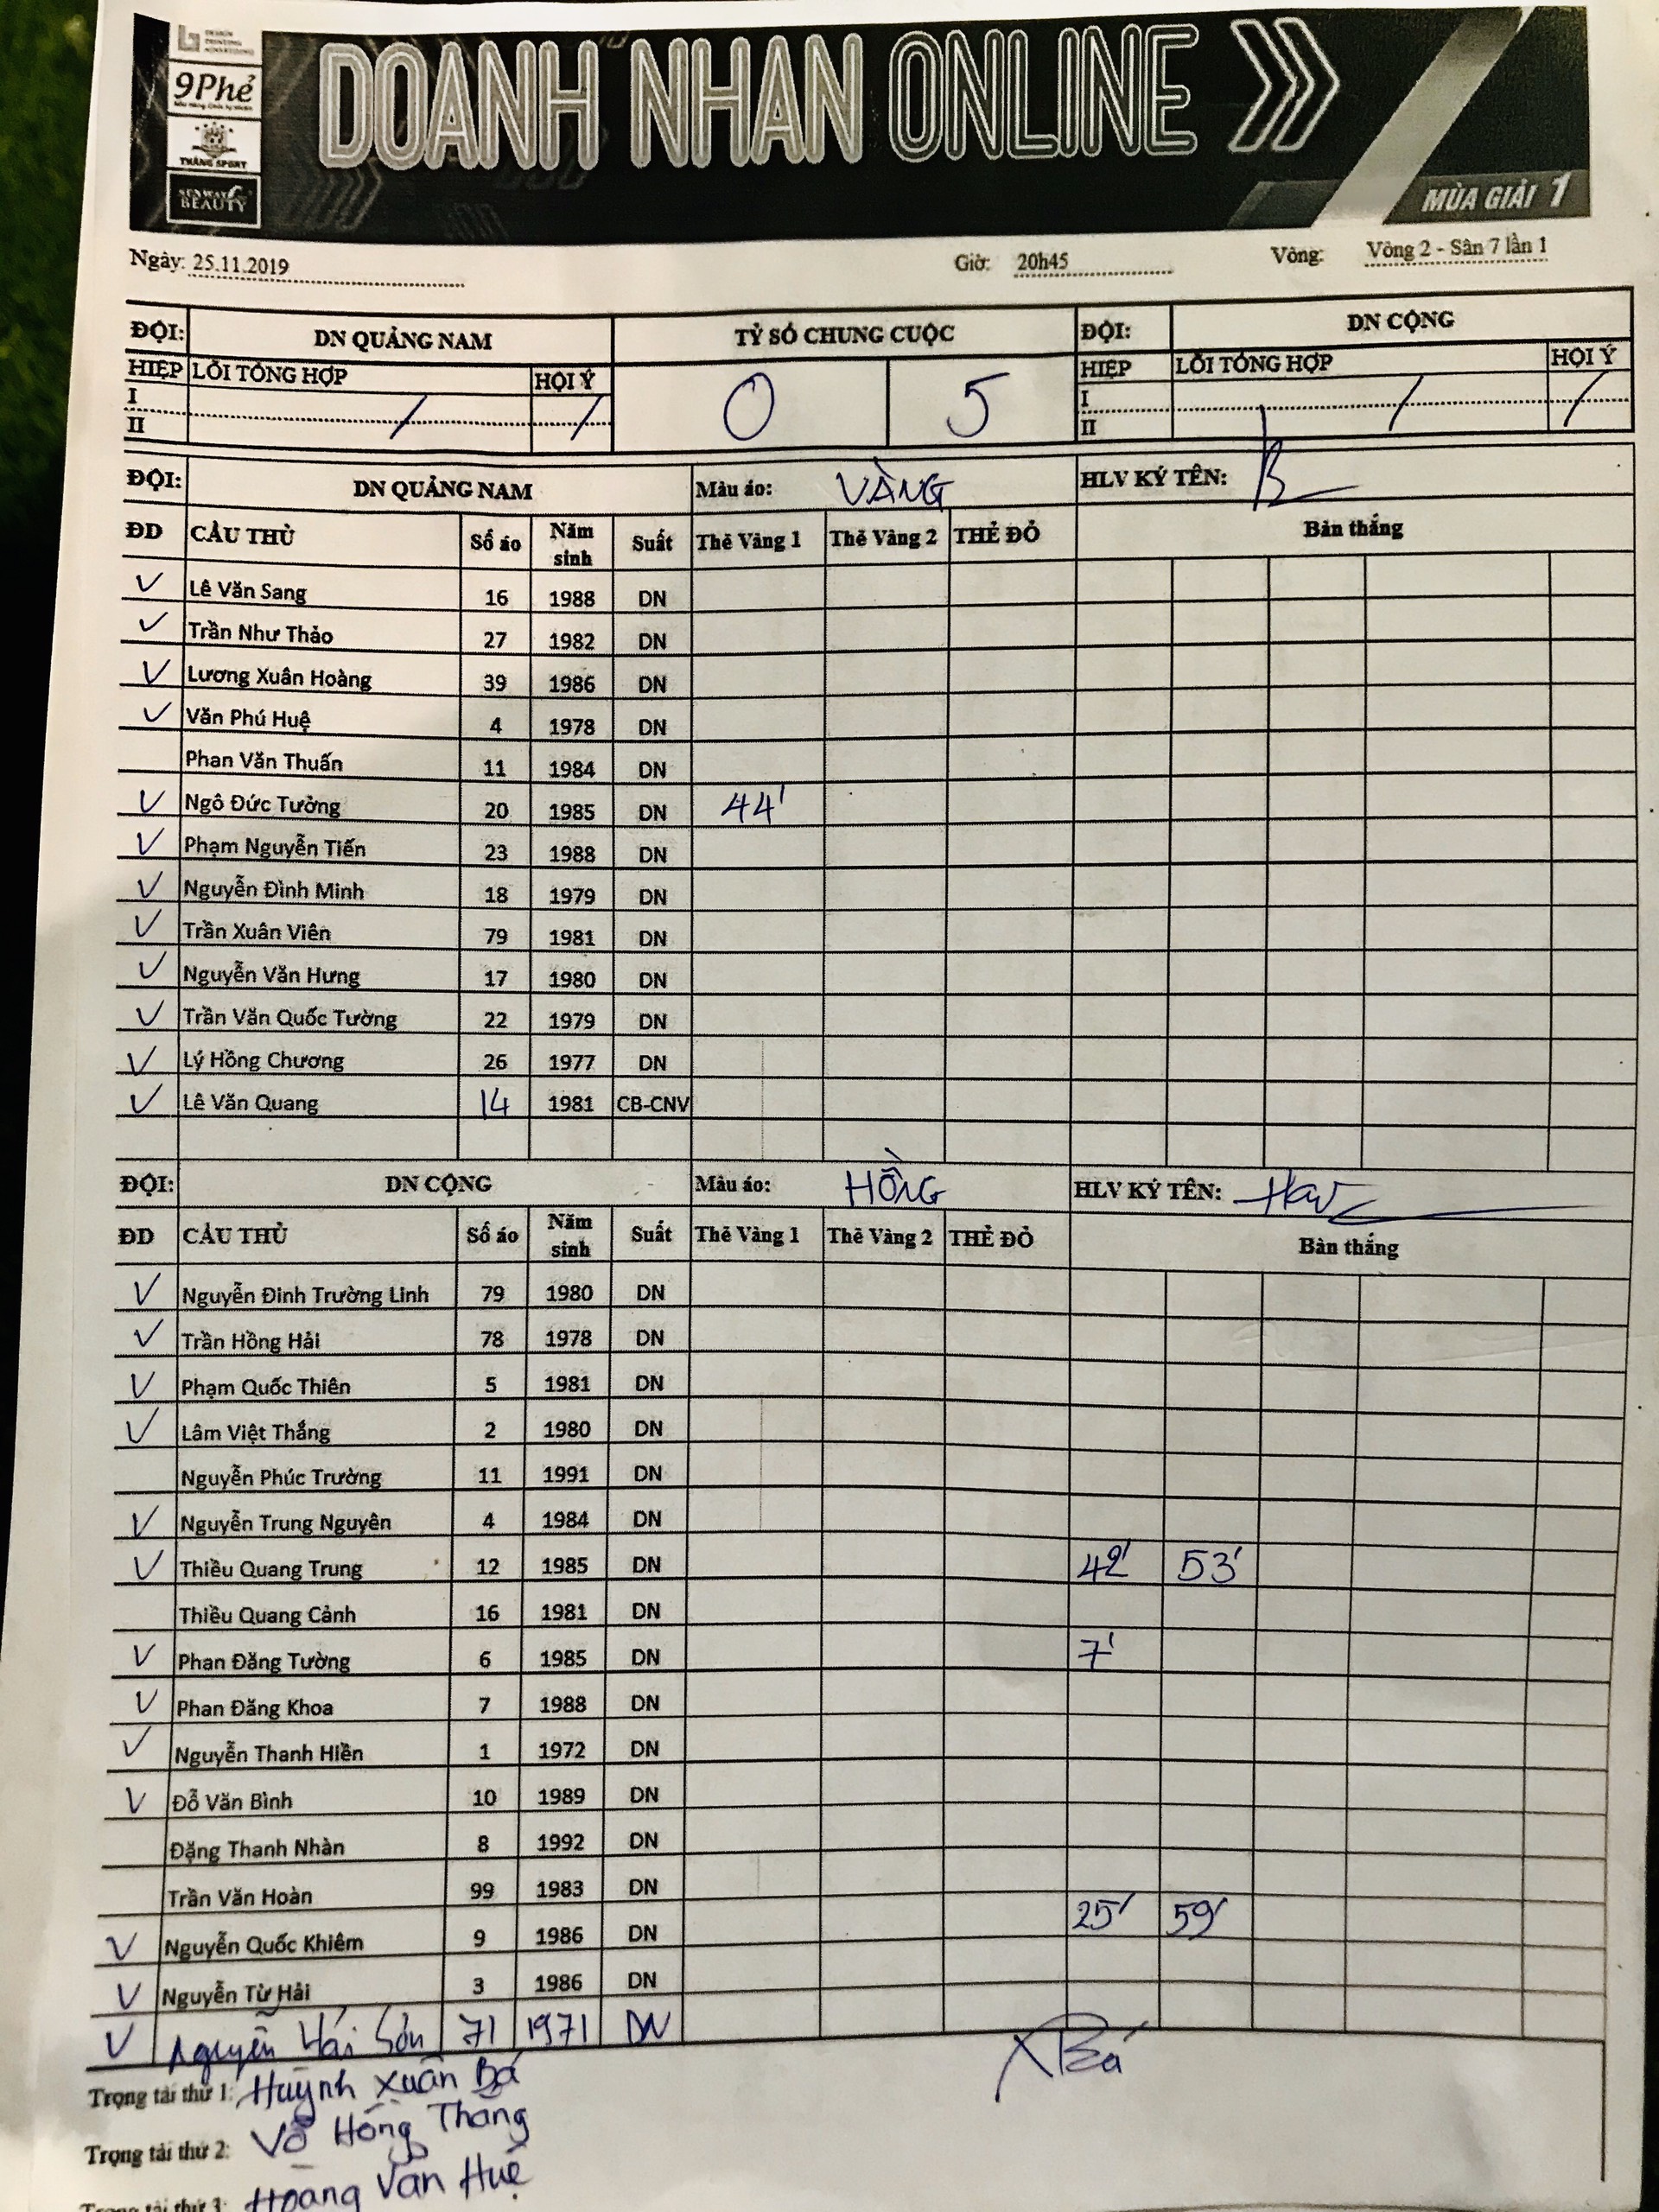 9Phẻ
THẮNG SPORT
BEAUTY
DOANH NHAN ONLINE
MÙA GIẢI 1
Ngày: 25.11.2019 Giờ: 20h45 Vòng: Vòng 2 - Sân 7 lần 1
ĐỘI: DN QUẢNG NAM TỶ SỐ CHUNG CUỘC ĐỘI: DN CỘNG
HIỆP LỖI TỔNG HỢP HỘI Ý 0 5 HIỆP LỖI TỔNG HỢP HỘI Ý
I / / I / /
II II
ĐỘI: DN QUẢNG NAM Màu áo: VÀNG HLV KÝ TÊN:
ĐD CẦU THỦ Số áo Năm sinh Suất Thẻ Vàng 1 Thẻ Vàng 2 THẺ ĐỎ Bàn thắng
V Lê Văn Sang 16 1988 DN
V Trần Như Thảo 27 1982 DN
V Lương Xuân Hoàng 39 1986 DN
V Văn Phú Huệ 4 1978 DN
Phan Văn Thuấn 11 1984 DN
V Ngô Đức Tường 20 1985 DN 44'
V Phạm Nguyễn Tiến 23 1988 DN
V Nguyễn Đình Minh 18 1979 DN
V Trần Xuân Viên 79 1981 DN
V Nguyễn Văn Hưng 17 1980 DN
V Trần Văn Quốc Tường 22 1979 DN
V Lý Hồng Chương 26 1977 DN
V Lê Văn Quang 14 1981 CB-CNV
ĐỘI: DN CỘNG Màu áo: HỒNG HLV KÝ TÊN:
ĐD CẦU THỦ Số áo Năm sinh Suất Thẻ Vàng 1 Thẻ Vàng 2 THẺ ĐỎ Bàn thắng
V Nguyễn Đinh Trường Linh 79 1980 DN
V Trần Hồng Hải 78 1978 DN
V Phạm Quốc Thiên 5 1981 DN
V Lâm Việt Thắng 2 1980 DN
Nguyễn Phúc Trường 11 1991 DN
V Nguyễn Trung Nguyên 4 1984 DN
V Thiều Quang Trung 12 1985 DN 42' 53'
Thiều Quang Cảnh 16 1981 DN
V Phan Đăng Tường 6 1985 DN 7'
V Phan Đăng Khoa 7 1988 DN
V Nguyễn Thanh Hiền 1 1972 DN
V Đỗ Văn Bình 10 1989 DN
Đặng Thanh Nhàn 8 1992 DN
Trần Văn Hoàn 99 1983 DN
V Nguyễn Quốc Khiêm 9 1986 DN 25' 59'
V Nguyễn Từ Hải 3 1986 DN
V Nguyễn Hải Sơn 71 1971 DN
Trọng tài thứ 1: Huỳnh Xuân Bá Bá
Trọng tài thứ 2: Võ Hồng Thắng
Trọng tài thứ 3: Hoàng Văn Huệ